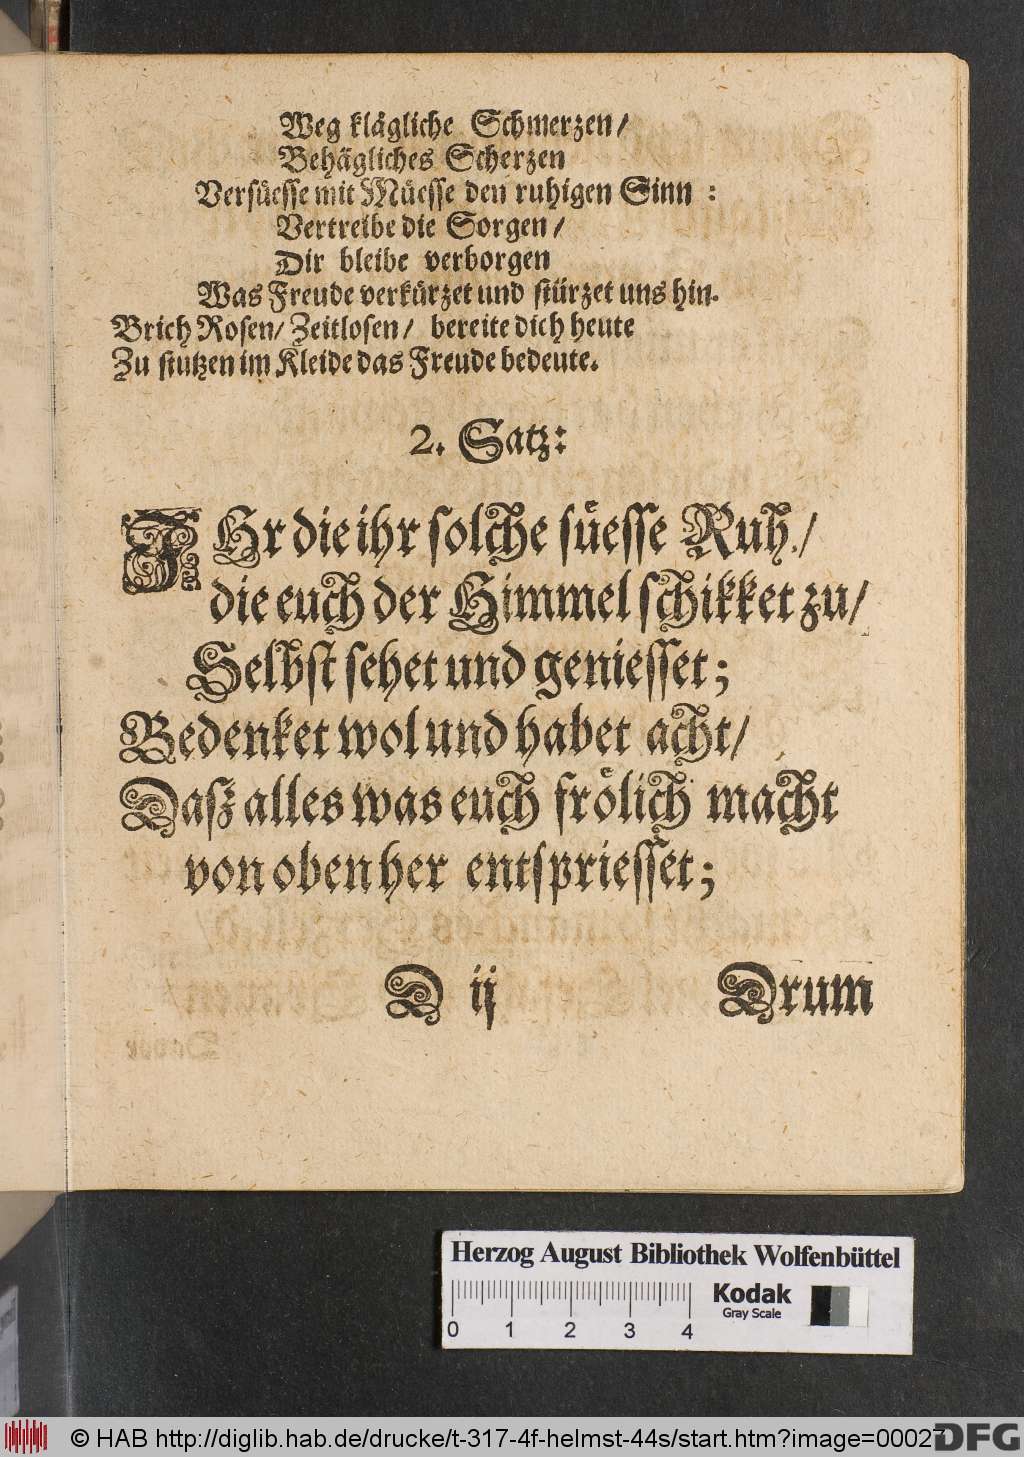 Weg klägliche Schmerzen/
Behägliches Scherzen
Versüesse mit Müesse den ruhigen Sinn :
Vertreibe die Sorgen/
Dir bleibe verborgen
Was Freude verkürzet und stürzet uns hin.
Brich Rosen/ Zeitlosen/ bereite dich heute
Zu stutzen im Kleide das Freude bedeute.
2. Satz:
IHr die ihr solche süesse Ruh/
die euch der Himmel schikket zu/
Selbst sehet und geniesset;
Bedenket wol und habet acht/
Daß alles was euch frölich macht
von oben her entspriesset;
D ij Drum
Herzog August Bibliothek Wolfenbüttel
Kodak
Gray Scale
0 1 2 3 4
© HAB http://diglib.hab.de/drucke/t-317-4f-helmst-44s/start.htm?image=00027
DFG